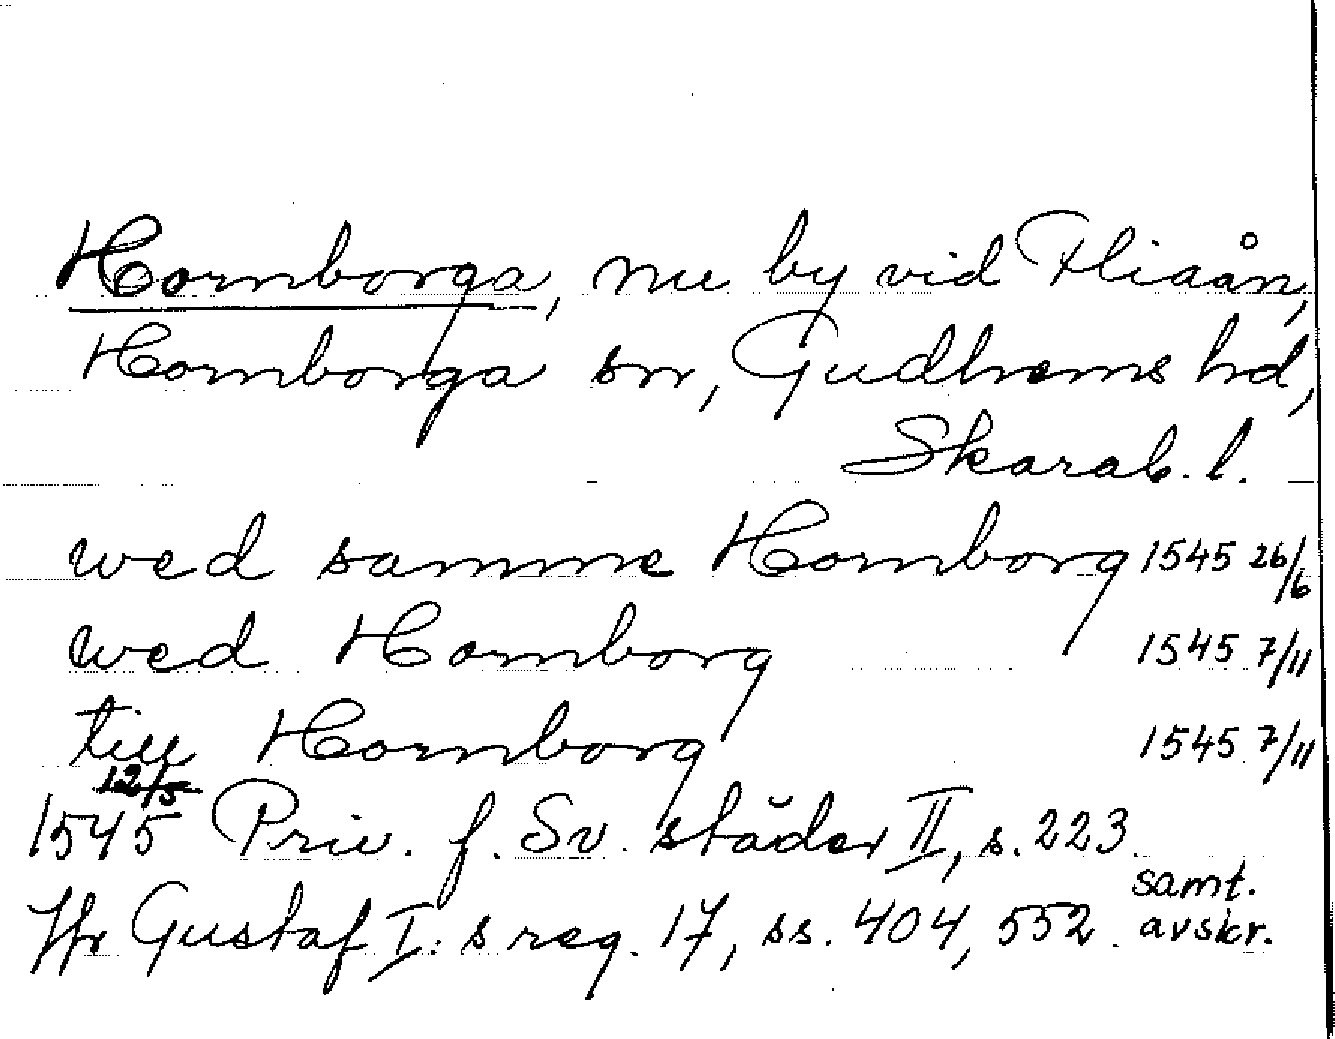 Hornborga, nu by vid Fliaån,
Hornborga sn, Gudhems hd,
Skarab. l.
wed samme Hornborg 1545 26/6
wed Hornborg 1545 7/11
till Hornborg 1545 7/11
12/5
1545 Priv. f. Sv. städer II, s. 223
samt.
Gustaf I:s reg. 17, ss. 404, 552. avskr.